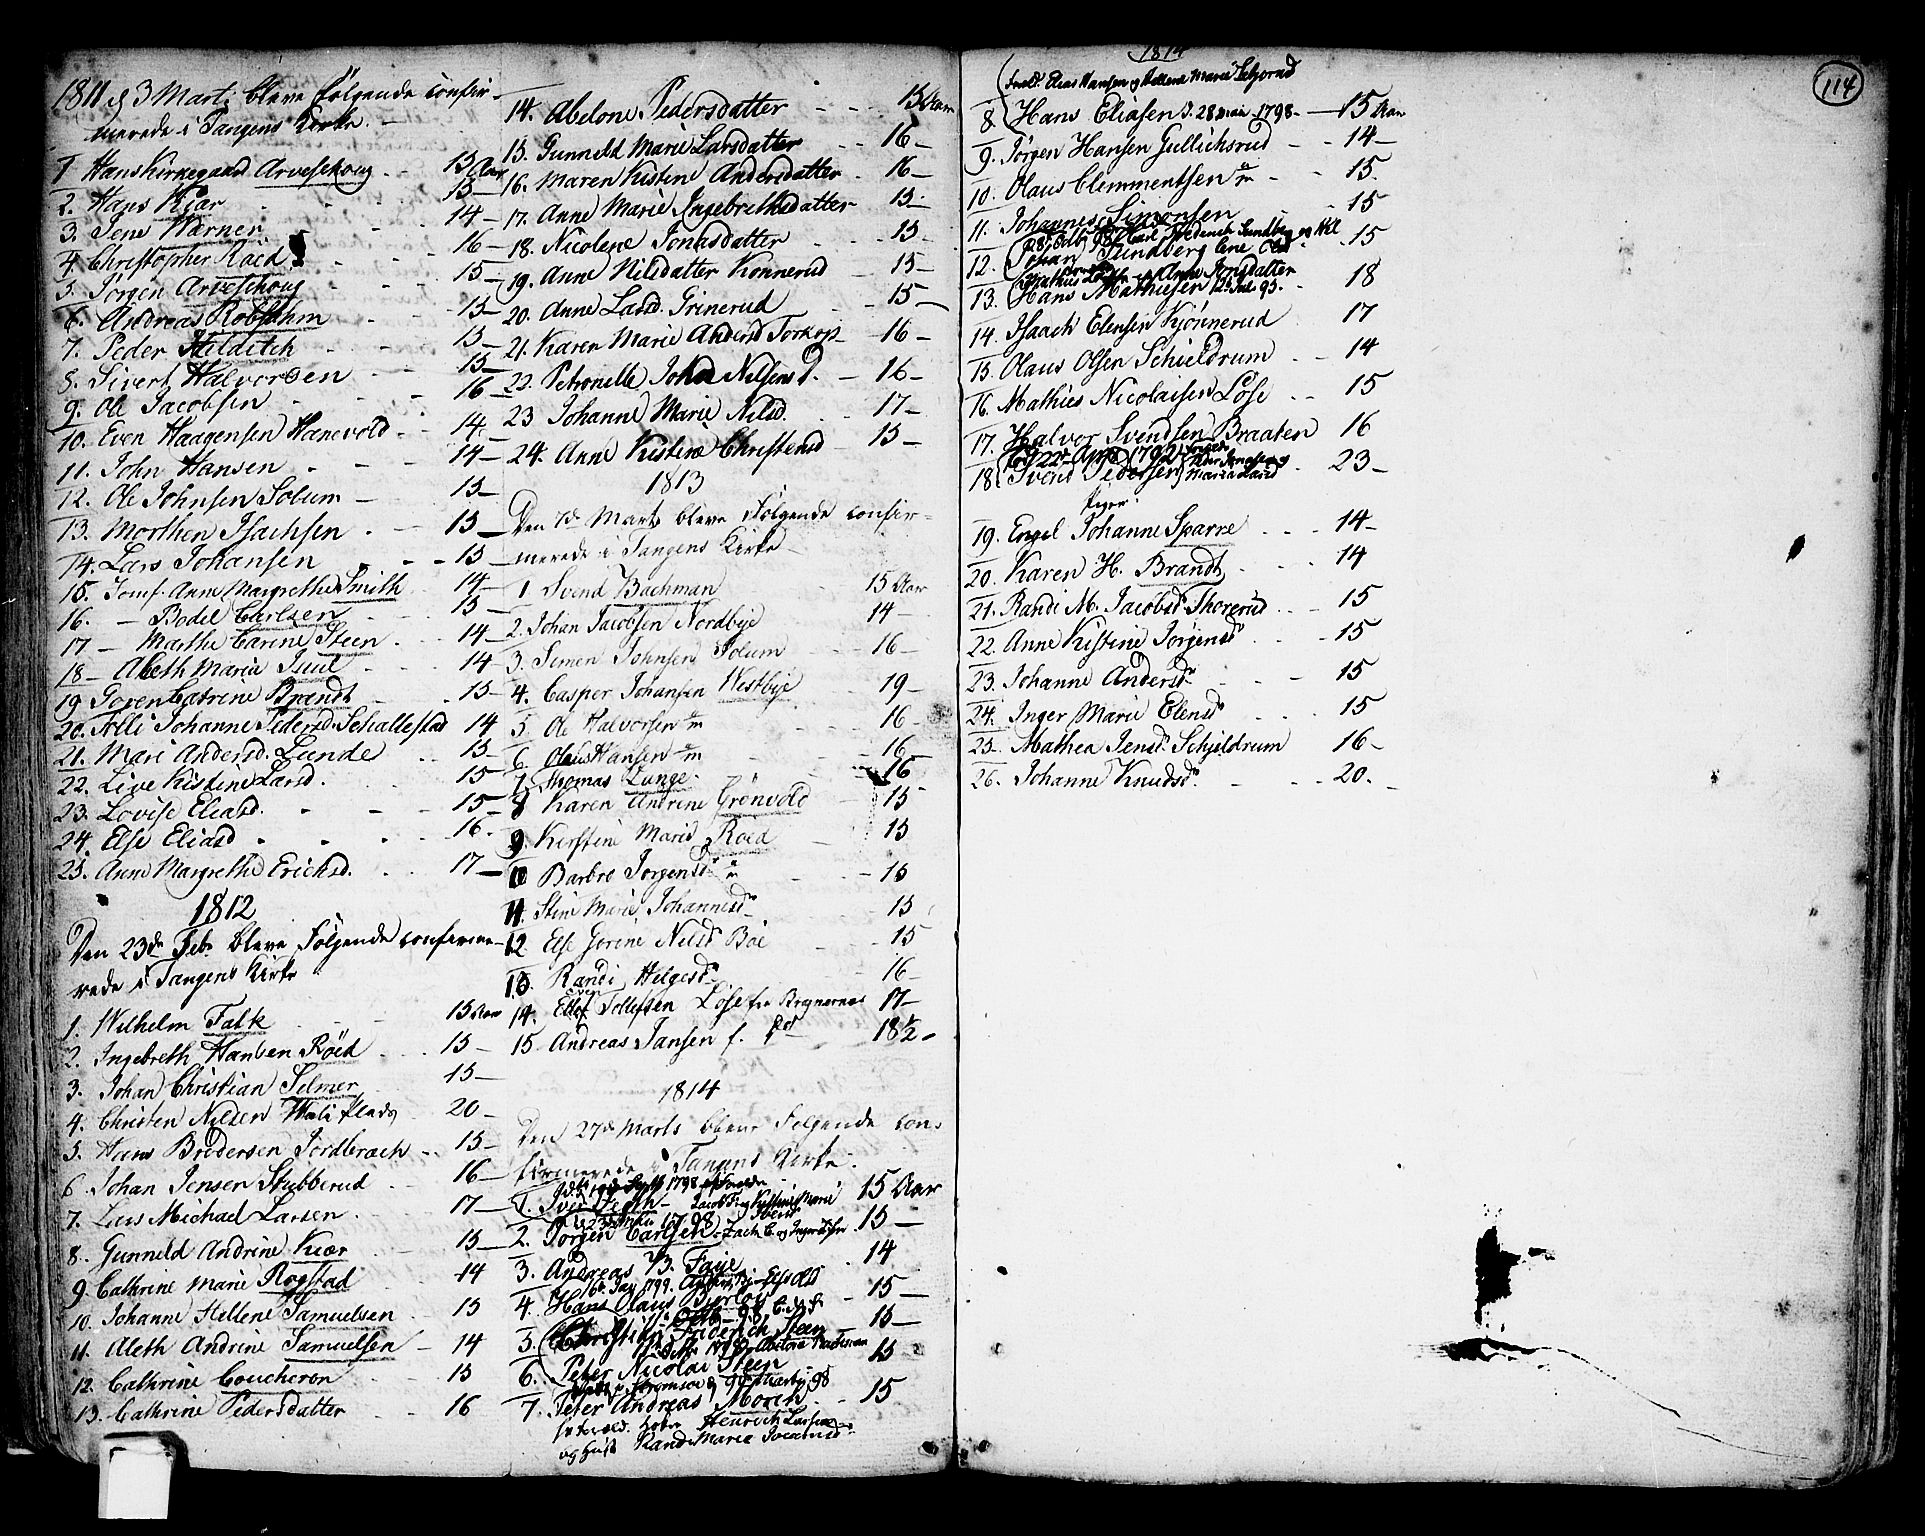 1811 d 3 Marti bleve Følgende confir-
merede i Tangens Kirke.
1 Hans Kirkegaard Arveschoug 15 Aar
2. Hans Kiær 15
3. Jens Warner 14
4. Christopher Röed 16
5. Jørgen Arveschoug 15
6. Andreas Robsahm 15
7. Peder Hilditch 15
8. Sivert Halvorsen 15
9. Ole Jacobsen 16
10. Even Haagensen Hanevold 14.
11. John Hansen 14
12. Ole Johnsen Solum 15
13. Morthen Isachsen 15
14. Lars Johansen 15
15. Jomf. Anne Margrethe Smith 14
16. — Bodel Carlsen 15
17 — Marthe Carine Steen 14
18 — Abeth Maria Juul 14
19 Goren Catrine Brandt 15
20. Alli Johanne Pedersd. Schallestad 14
21. Mari Andersd. Lunde 15
22. Live Kistine Larsd. 15
23. Lovise Eliasd. 15
24. Else Eliasd 16.
25. Anne Margrethe Erichsd. 17
1812
Den 23de Feb. bleve Følgende confirme-
rede i Tangens Kirke
1. Wilhelm Falk 15 Aar
2. Ingebreth Hansen Röed 15
3. Johan Christian Selmer 15
4. Christen Nilsen 20
5. Hans Bredersen Jordbræch 15
6. Johan Jensen Stubberud 16
7. Lars Michael Larsen 17
8. Gunneld Andrine Kiær 15
9. Cathrine Marie Rogstad 14
10. Johanne Hellene Samuelsen 15
11. Aleth Andrine Samuelsen 14
12. Cathrine Coucheron 15
13. Cathrine Pedersdatter 16
14. Abelone Pedersdatter 15 Aar
15. Gunneld Marie Larsdatter 16
16. Maren Kistine Andersdatter 16
17. Anne Marie Ingebrethsdatter 15
18. Nicolene Jonasdatter 15
19. Anne Nilsdatter Konnerud 15
20. Anne Larsd. Grinerud 15
21. Karen Marie Andersd Torkop 16
22. Petronelle Joha Nilsens D. 16
23 Johanne Marie Nilsd. 17
24. Anne Kistine Christensd 15
1813
Den 7de Marts bleve Følgende confir-
merede i Tangens Kirke
1. Svend Bachman 15 Aar
2. Johan Jacobsen Nordbye 14
3. Simen Johnsen Solum 16
4. Casper Johansen Westbye 19
5 Ole Halvorsen 16
6. Olaus Hansen 16
7. Thomas Lunge. 16
8 Karen Andrine Grönvold 15
9. Kirstine Marie Roed 15
10 Barbro Jorgensd 15
11. Stine Marie Johannesd 15
12. Else Gorine Nilsd Böe 15
13. Randi Helgesd 16
14. Even Tollefsen Löse fra Bragernes 17
15. Andreas Jansen f. 18½
1814
Den 27de Marts bleve Følgende con-
firmerede i Tangens Kirke.
1. Iver 15 Aar
2. Jörgen Carlsen 15
3. Andreas B. Faye 14
4. Hans Olaus 15
5. Christian Friderich Steen 15
6. Peter Nicolai Steen 15
7. Peter Andreas Moren 15
Henrich Larsen
og Randi Maria
1814
114
Elias Hansen og Hellene Marie
8. Hans Eliasen 28 Mai 1798 15 Aar
9. Jørgen Hansen Gullichsrud 14
10. Olaus Clemmentsen 15.
11. Johannes Simonsen 15
12. Johan Sundberg 15
13. Hans Mathiesen 18
14. Isaach Elensen Kjönnerud 17
15. Olaus Olsen Schieldrum 14
16. Mathies Nicolaisen Löse 15
17. Halvor Svendsen Braaten 16
18. Svend Pedersen 23
Piger.
19. Engel Johanne Sparre 14
20. Karen H. Brandt 14
21. Randi M. Jacobsd. Thorerud 15
22. Anne Kistine Jorgensd 15
23. Johanne Andersd 15
24. Inger Marie Elensd 15
25. Mathea Jensd. Schjeldrum 16
26. Johanne Knudsd 20.